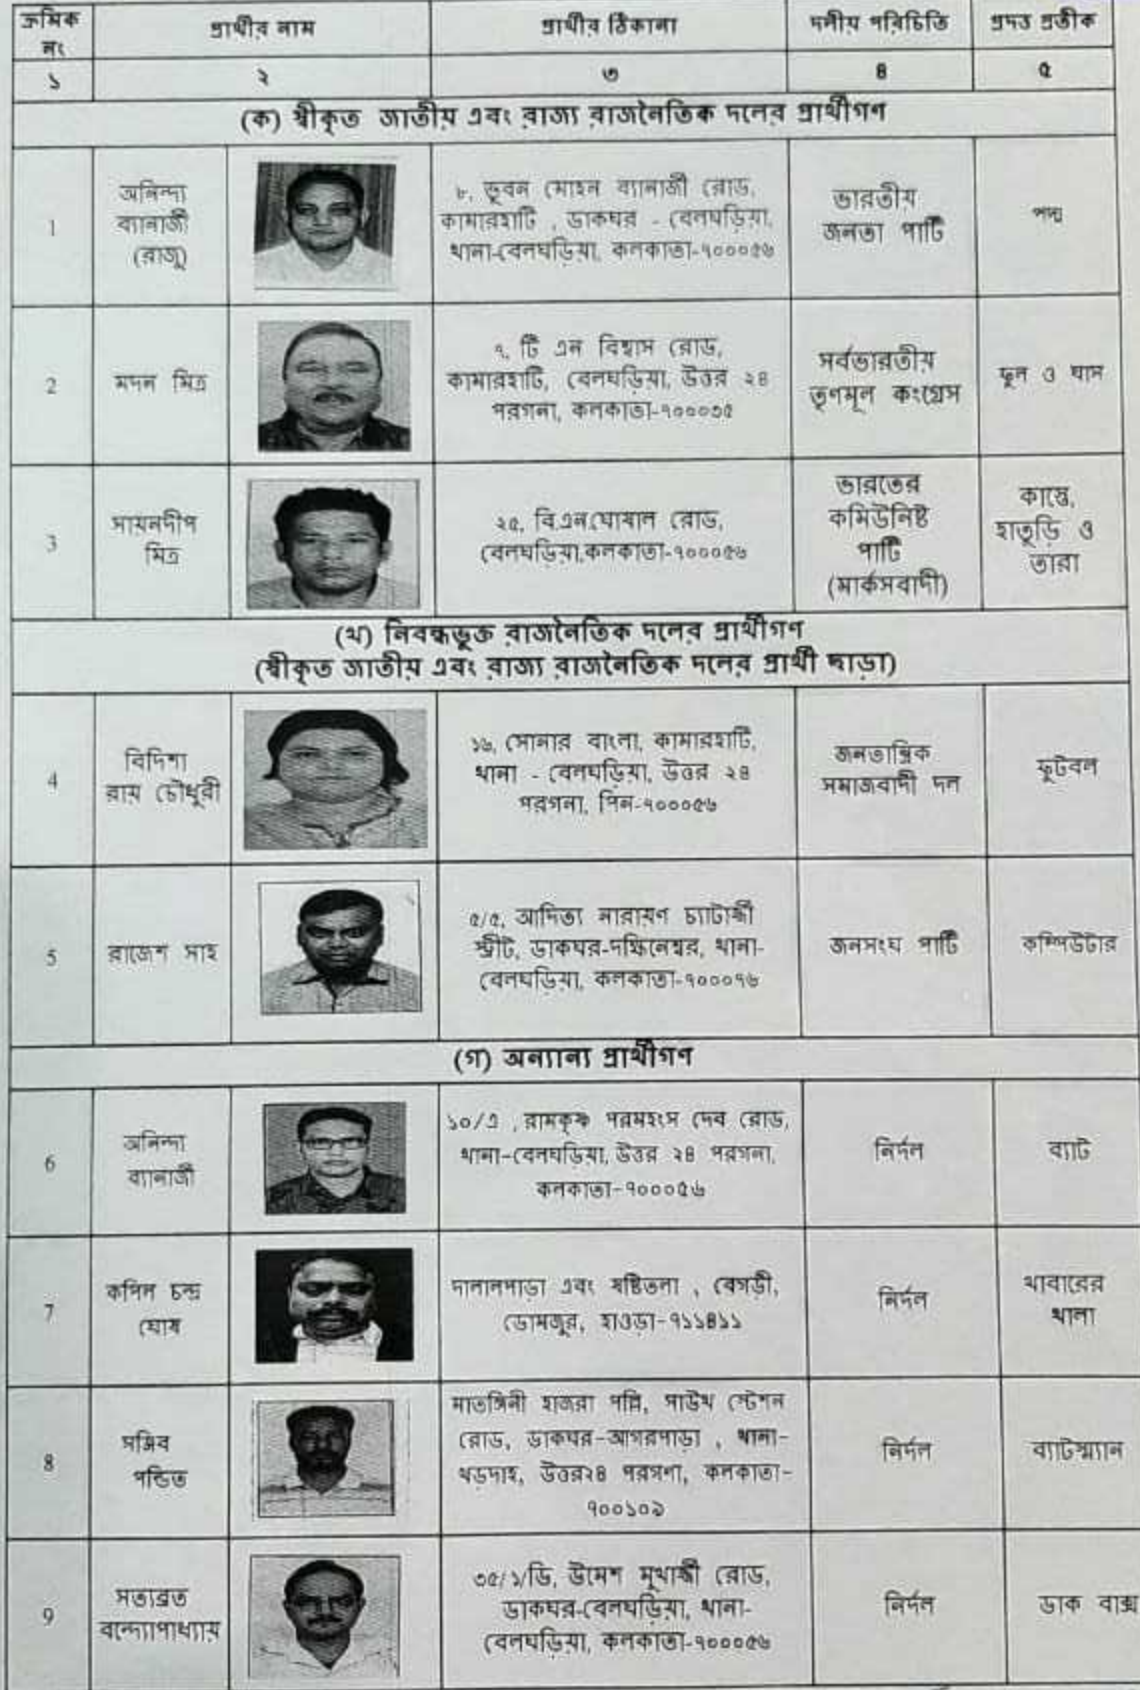 ক্রমিক নং প্রার্থীর নাম প্রার্থীর ঠিকানা দলীয় পরিচিতি প্রদত্ত প্রতীক
১ ২ ৩ ৪ ৫
(ক) স্বীকৃত জাতীয় এবং রাজ্য রাজনৈতিক দলের প্রার্থীগণ
1
অনিন্দ্য
ব্যানার্জী
(রাজু)
৮, ভূবন মোহন ব্যানার্জী রোড,
কামারহাটি , ডাকঘর - বেলঘড়িয়া,
থানা-বেলঘড়িয়া, কলকাতা-৭০০০৫৬
ভারতীয়
জনতা পার্টি
পদ্ম
2
মদন মিত্র
৭, টি এন বিশ্বাস রোড,
কামারহাটি, বেলঘড়িয়া, উত্তর ২৪
পরগনা, কলকাতা-৭০০০৩৫
সর্বভারতীয়
তৃণমূল কংগ্রেস
ফুল ও ঘাস
3
সায়নদীপ
মিত্র
২৫, বি.এন.ঘোষাল রোড,
বেলঘড়িয়া,কলকাতা-৭০০০৫৬
ভারতের
কমিউনিষ্ট
পার্টি
(মার্কসবাদী)
কাস্তে,
হাতুড়ি ও
তারা
(খ) নিবন্ধভুক্ত রাজনৈতিক দলের প্রার্থীগণ
(স্বীকৃত জাতীয় এবং রাজ্য রাজনৈতিক দলের প্রার্থী ছাড়া)
4
বিদিশা
রায় চৌধুরী
১৬, সোনার বাংলা, কামারহাটি,
থানা - বেলঘড়িয়া, উত্তর ২৪
পরগনা, পিন-৭০০০৫৬
জনতান্ত্রিক
সমাজবাদী দল
ফুটবল
5
রাজেশ সাহ
৫/৫, আদিত্য নারায়ণ চ্যাটার্জ্জী
স্ট্রীট, ডাকঘর-দক্ষিনেশ্বর, থানা-
বেলঘড়িয়া, কলকাতা-৭০০০৭৬
জনসংঘ পার্টি
কম্পিউটার
(গ) অন্যান্য প্রার্থীগণ
6
অনিন্দ্য
ব্যানার্জী
১০/এ , রামকৃষ্ণ পরমহংস দেব রোড,
থানা-বেলঘড়িয়া, উত্তর ২৪ পরগনা,
কলকাতা-৭০০০৫৬
নির্দল
ব্যাট
7
কপিল চন্দ্র
ঘোষ
দালালপাড়া এবং ষষ্ঠিতলা , বেগড়ী,
ডোমজুর, হাওড়া-৭১১৪১১
নির্দল
খাবারের
থালা
8
সঞ্জিব
পন্ডিত
মাতঙ্গিনী হাজরা পল্লি, সাউথ স্টেশন
রোড, ডাকঘর-আগরপাড়া , থানা-
খড়দাহ, উত্তর২৪ পরগণা, কলকাতা-
৭০০১০৯
নির্দল
ব্যাটস্ম্যান
9
সত্যব্রত
বন্দ্যোপাধ্যায়
৩৫/১/ডি, উমেশ মুখার্জ্জী রোড,
ডাকঘর-বেলঘড়িয়া, থানা-
বেলঘড়িয়া, কলকাতা-৭০০০৫৬
নির্দল
ডাক বাক্স